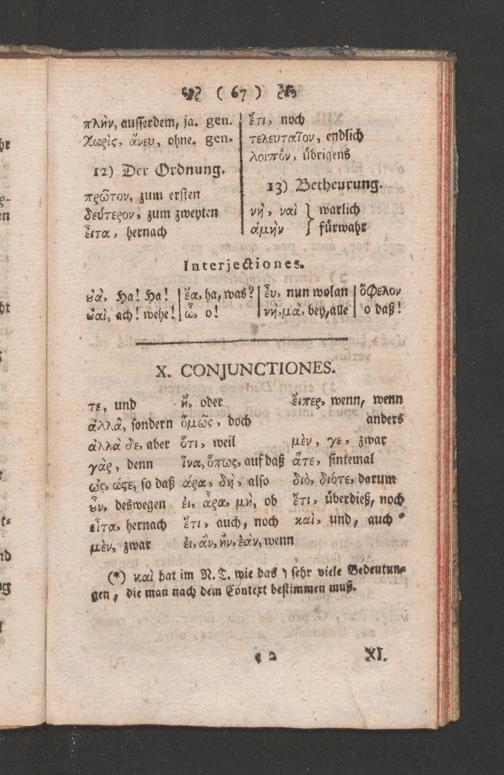 ( 67 )
πλὴν, ausserdem, ja. gen.
χωρὶς, ἄνευ, ohne. gen.
12) Der Ordnung.
πρῶτον, zum ersten
δεύτερον, zum zweyten
εἶτα, hernach
ἔτι, noch
τελευταῖον, endlich
λοιπὸν, übrigens
13) Betheurung.
νὴ, ναὶ } warlich
ἀμὴν } fürwahr
Interjectiones.
Ha! Ha! | ἔα, ha, was? | εὖ, nun wolan | ὄφελον
ach! wehe! | ὦ, o! | νὴ, μὰ, bey, alle | o daß!
X. CONJUNCTIONES.
τε, und ἢ, oder εἴπερ, wenn, wenn
ἀλλὰ, sondern ὅμως, doch anders
ἀλλὰ δε, aber ὅτι, weil μὲν, γε, zwar
γὰρ, denn ἵνα, ὅπως, auf daß ἅτε, sintemal
ὡς, ὥςε, so daß ἄρα, δὴ, also διὸ, διότε, darum
ὖν, deswegen εἰ, ἆρα, μὴ, ob ἔτι, überdieß, noch
εἶτα, hernach ἔτι, auch, noch καὶ, und, auch *
μὲν, zwar εἰ, ἂν, ἢν, ἐὰν, wenn
(*) καὶ hat im N. T. wie das ו sehr viele Bedeutun-
gen, die man nach dem Context bestimmen muß.
XI.